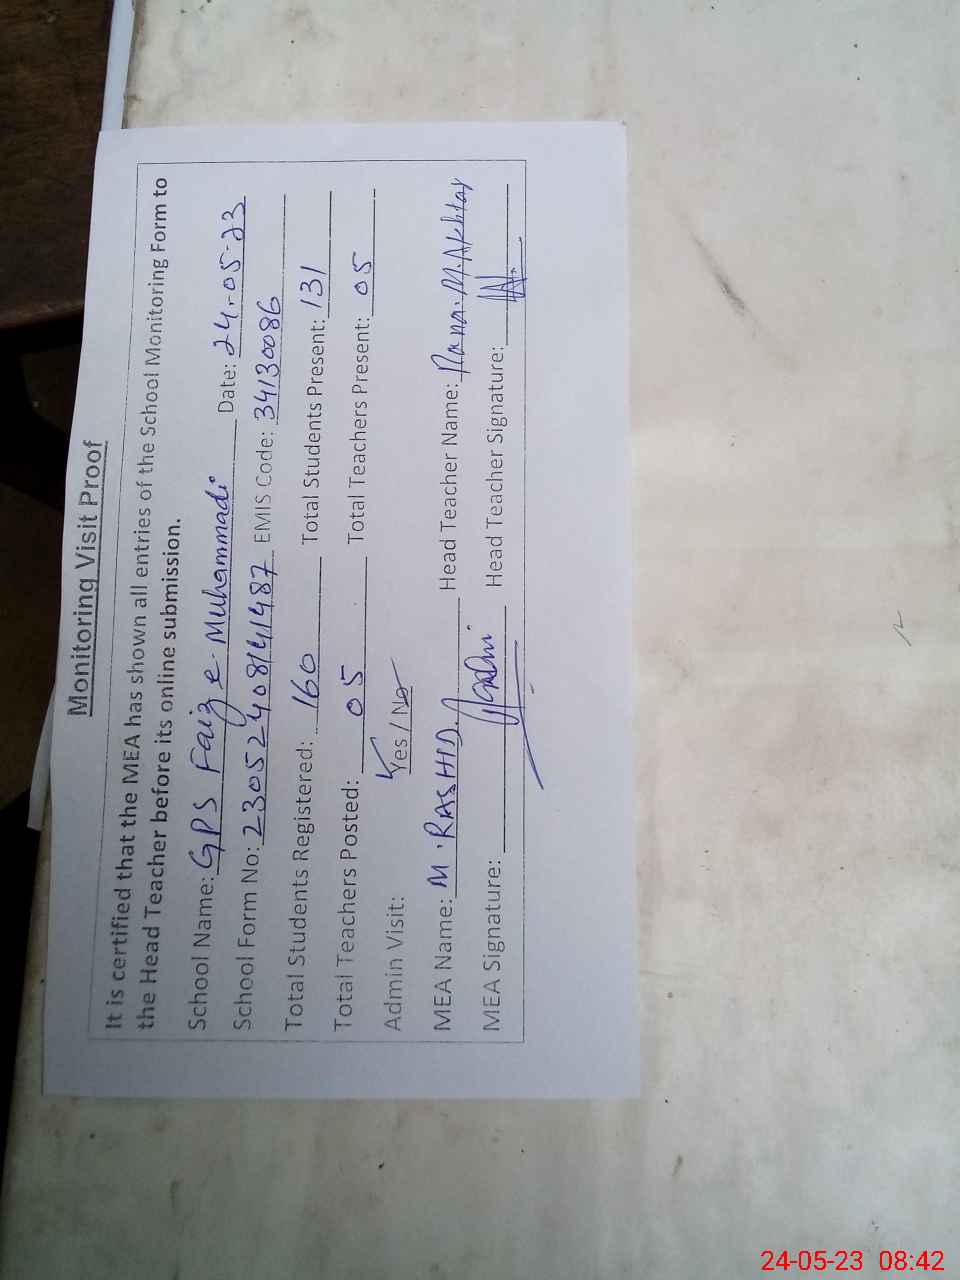 Monitoring Visit Proof
It is certified that the MEA has shown all entries of the School Monitoring Form to
the Head Teacher before its online submission.
School Name: GPS Faiz e. Muhammadi Date: 24-05-23
School Form No: 23052408141487 EMIS Code: 34130086
Total Students Registered: 160 Total Students Present: 131
Total Teachers Posted: 05 Total Teachers Present: 05
Admin Visit: Yes / No
MEA Name: M. RASHID. Head Teacher Name: Rana. M. Akhtar
MEA Signature: Head Teacher Signature:
24-05-23 08:42